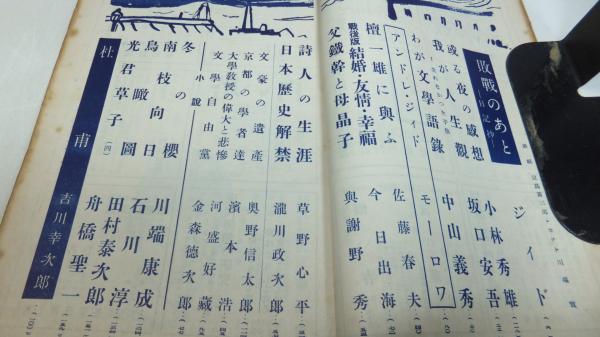 敗戰のあと
—日記抄—
ジイド
或る夜の感想 小林秀雄
我が人生觀 坂口安吾
わが文學語錄 中山義秀
アンドレ・ジイド モーロワ
檀一雄に與ふ 佐藤春夫
戰後版 結婚・友情・幸福 今日出海
父鐵幹と母晶子 與謝野秀
詩人の生涯 草野心平
日本歴史解禁 瀧川政次郎
文豪の遺産 奥野信太郎
京都の學者達
大學教授の偉大と悲慘 濱本浩
文學自由黨 河盛好藏
小說 金森德次郎
冬の櫻 川端康成
南枝向日 石川淳
鳥瞰圖 田村泰次郎
光君草子(四) 舟橋聖一
杜甫 吉川幸次郎